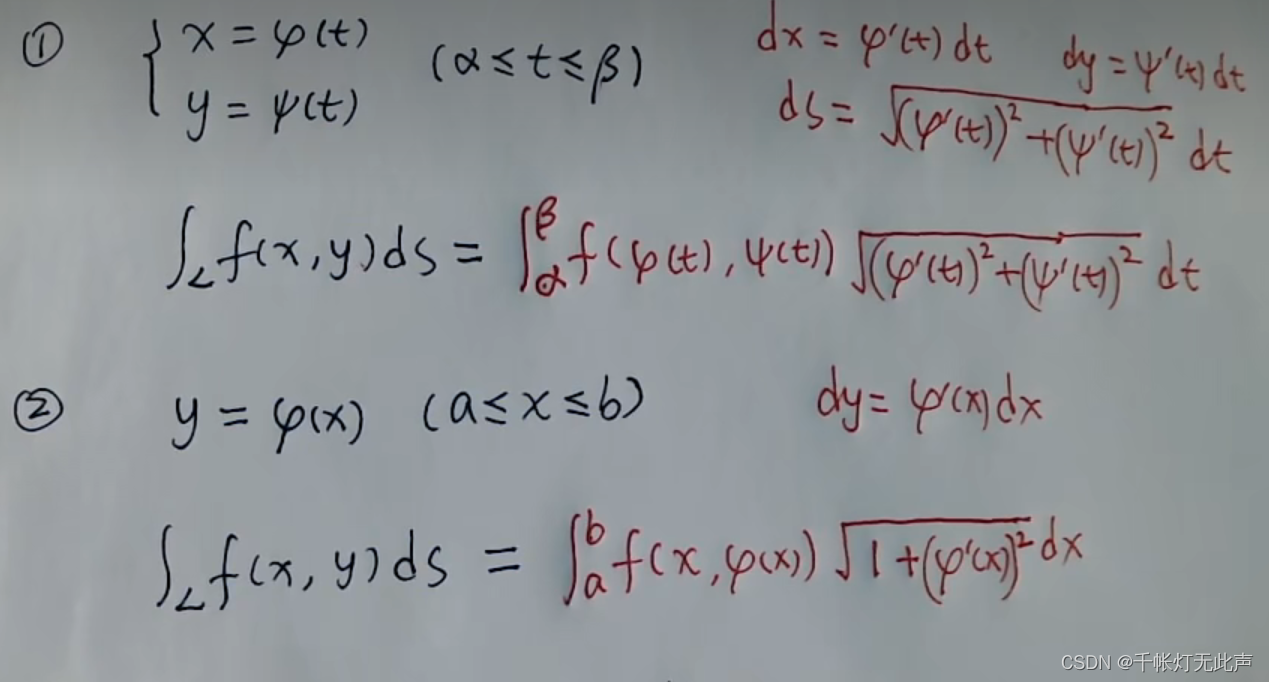 ① { x = φ(t)
y = ψ(t)
(α ≤ t ≤ β)
dx = φ'(t) dt dy = ψ'(t) dt
ds = √((φ'(t))² + (ψ'(t))²) dt
∫_L f(x, y) ds = ∫_α^β f(φ(t), ψ(t)) √((φ'(t))² + (ψ'(t))²) dt
② y = φ(x) (a ≤ x ≤ b) dy = φ'(x) dx
∫_L f(x, y) ds = ∫_a^b f(x, φ(x)) √(1 + (φ'(x))²) dx
CSDN @千帐灯无此声